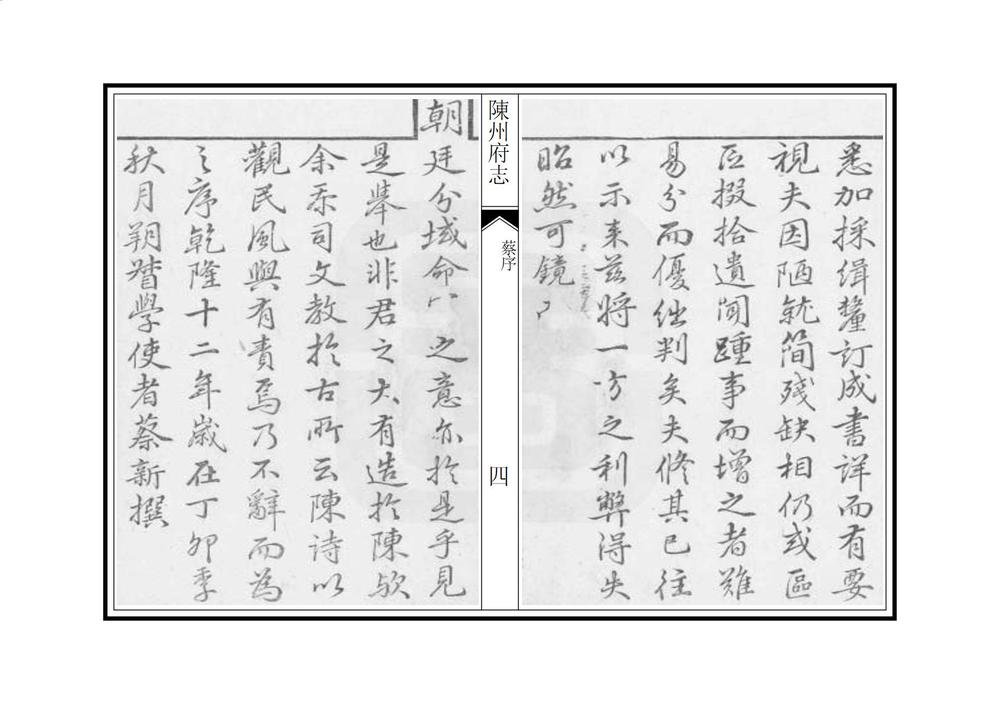 悉加採緝釐訂成書詳而有要
視夫因陋就簡殘缺相仍或區
區掇拾遺聞踵事而增之者難
易分而優絀判矣夫修其已往
以示来茲將一方之利弊得失
昭然可鏡
陳州府志
蔡序
四
朝廷分域命 之意亦於是乎見
是舉也非君之大有造於陳欤
余忝司文教於古所云陳詩以
觀民風與有責焉乃不辭而為
之序乾隆十二年歲在丁卯季
秋月朔督學使者蔡新撰